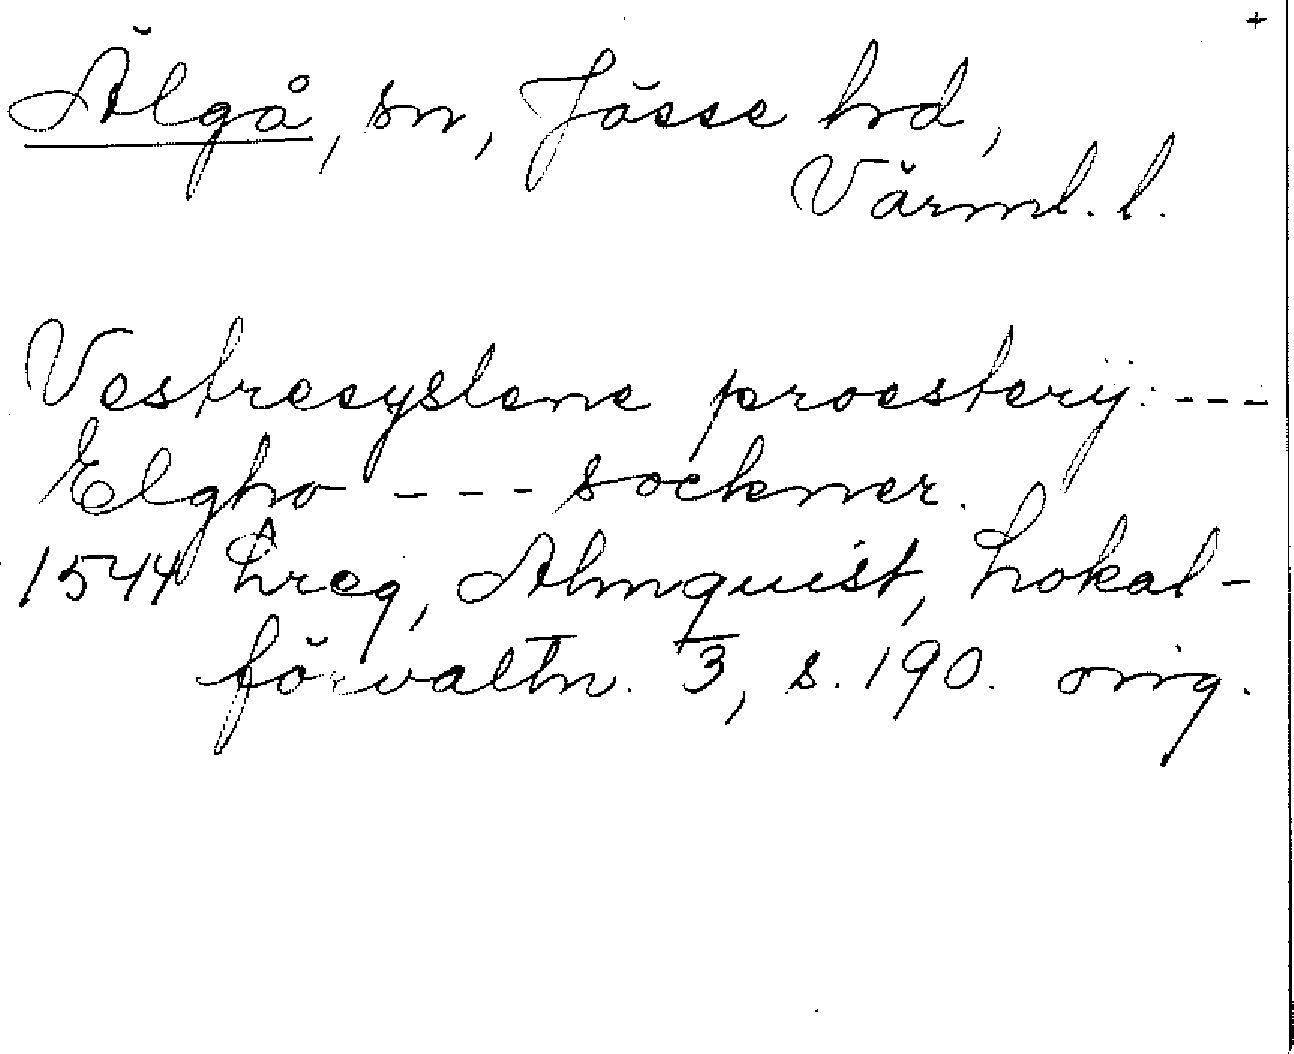 +
Älgå, sn, Jösse hd,
Värml. l.
Vestresyslene proesterij: ---
Elgho --- sockner.
1544 Lreg, Almquist, Lokal-
förvaltn. 3, s. 190. orig.